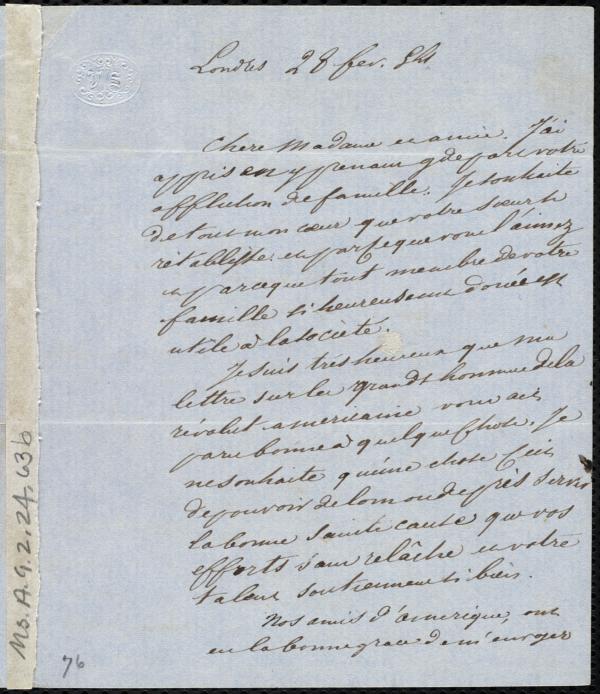 Londres 28 fev. 54.
Chere Madame et amie. J'ai
appris en y prenant gde part votre
affliction de famille. Je souhaite
de tout mon cœur que votre sœur se
rétablisse et parceque vous l'aimez
et parceque tout membre de votre
famille si heureusement douée est
utile à la société.
Je suis très heureux que ma
lettre sur les grands hommes de la
révolut. américaine vous ait
paru bonne à quelque chose. Je
ne souhaite qu'une chose c'est
de pouvoir de loin ou de près servir
la bonne sainte cause que vos
efforts sans relâche et votre
talent soutiennent si bien.
Nos amis d'amerique, ont
eu la bonne grace de m'envoyer
Ms. A. 9. 2. 24. 63b
76